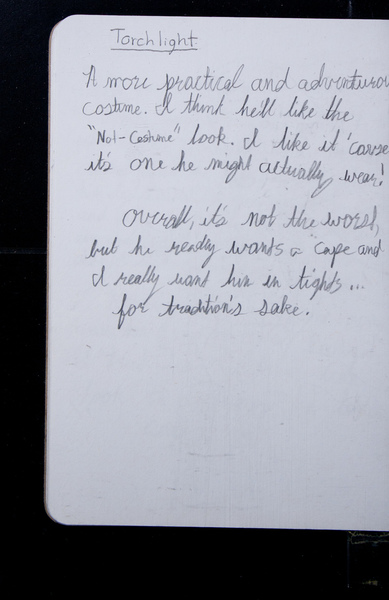 Torchlight
A more practical and adventurou
costume. I think he'll like the
"Not-Costume" look. I like it 'cause
it's one he might actually wear!
Overall, it's not the worst,
but he really wants a cape and
I really want him in tights...
for tradition's sake.